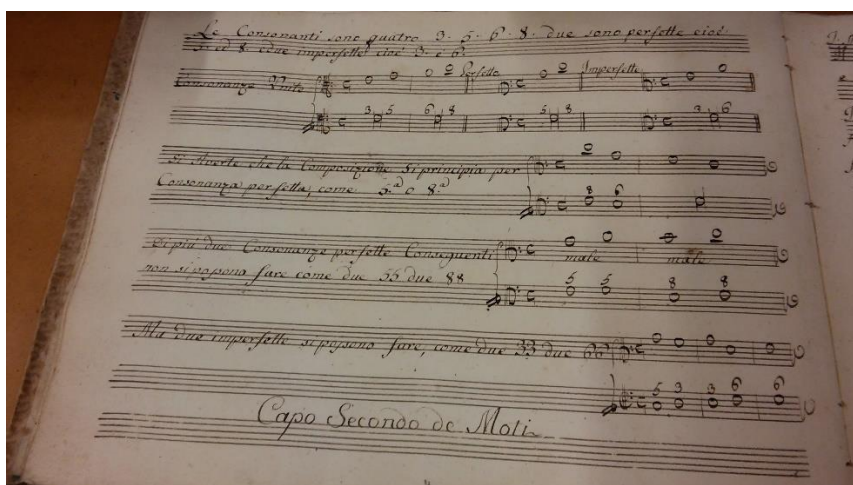 Le Consonanti sono quatro 3. 5. 6. 8. due sono perfette cioè
5. ed 8. e due imperfette cioè 3. e 6.
Consonanze Unite Perfette Imperfette
3 5 6 8 5 8 3 6
Si Averte che la Composizione si principia per
Consonanza perfetta, come 5.a o 8.a
8 6
Di più due Consonanze perfette Conseguenti male male
non si posono fare come due 55 due 88
5 5 8 8
Ma due imperfette si posono fare, come due 33 due 66
5 3 3 6 6
Capo Secondo de Moti